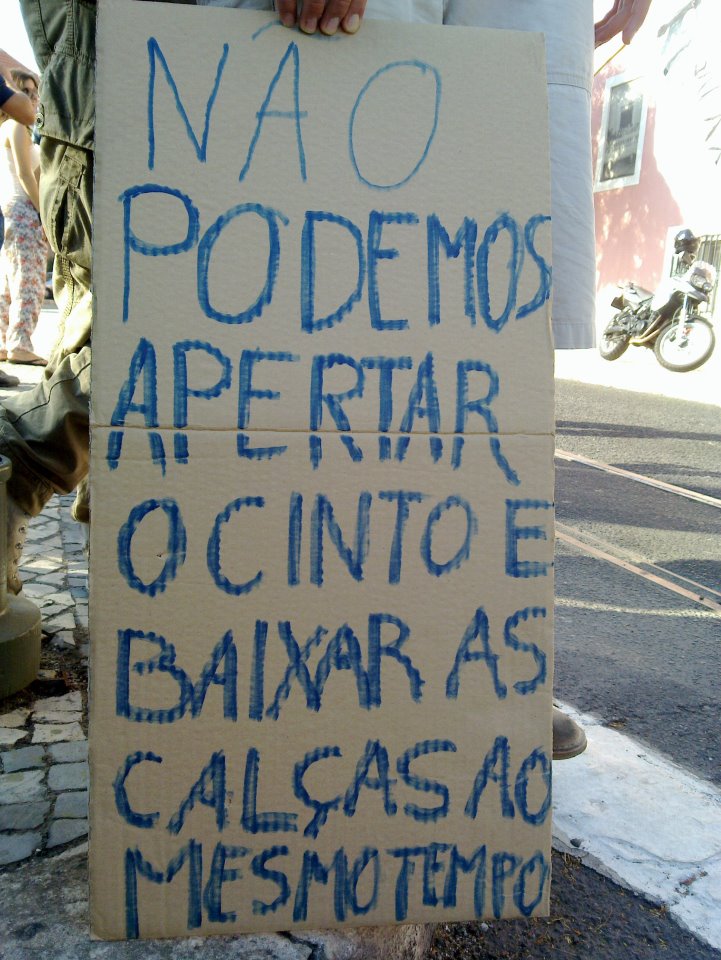 NÃO
PODEMOS
APERTAR
O CINTO E
BAIXAR AS
CALÇAS AO
MESMO TEMPO